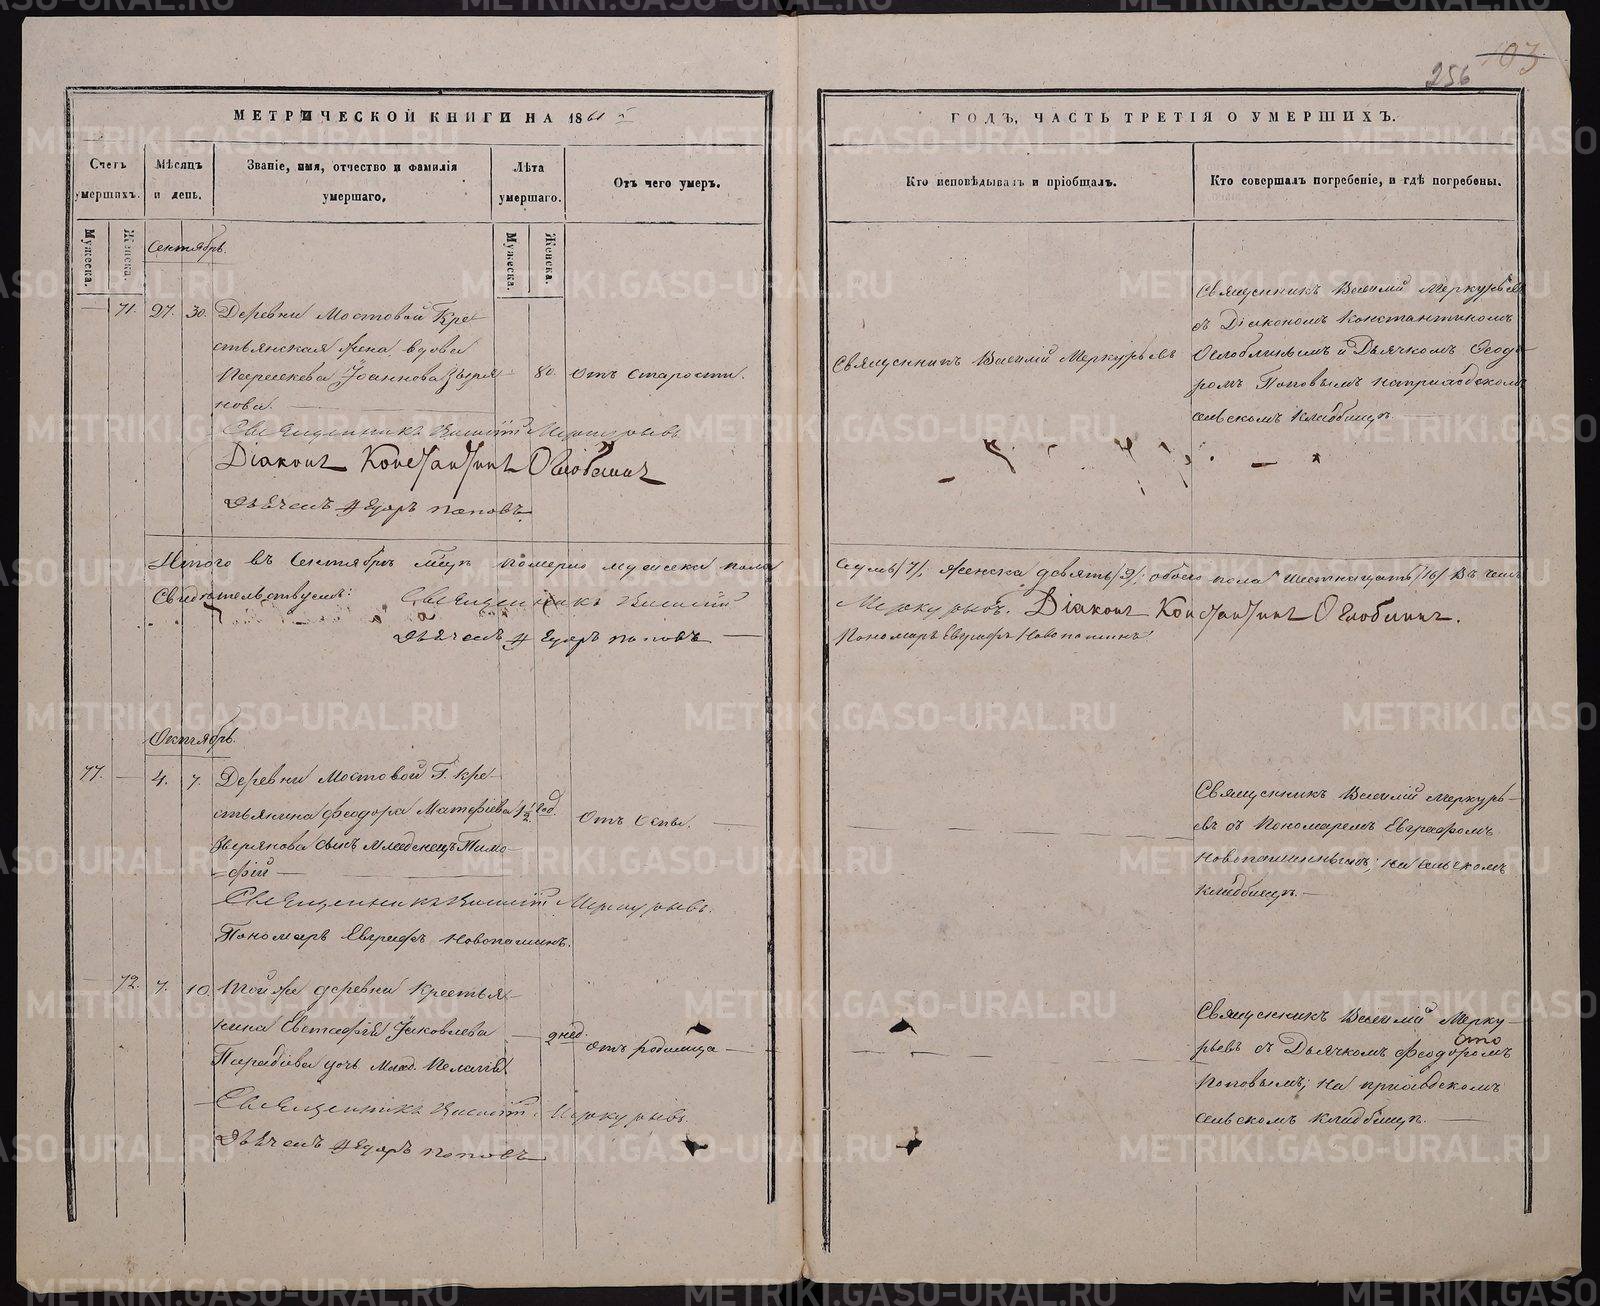 256 103
МЕТРИЧЕСКОЙ КНИГИ НА 1861 й
ГОДЪ, ЧАСТЬ ТРЕТІЯ О УМЕРШИХЪ.
Счетъ умершихъ.
Мѣсяцъ и день.
Званіе, имя, отчество и фамилія умершаго,
Лѣта умершаго.
Отъ чего умеръ.
Кто исповѣдывалъ и пріобщалъ.
Кто совершалъ погребеніе, и гдѣ погребены.
Мужеска.
Женска.
Мужеска.
Женска.
Сентябрь.
71. 27. 30. Деревни Мостовой Кре-
стьянская жена вдова
Параскева Іоаннова Зыря-
нова.
80. Отъ старости.
Священникъ Василій Меркурьевъ
Священникъ Василій Меркурьевъ
съ Діакономъ Константиномъ
Оглоблинымъ и Дьячкомъ Ѳеодо-
ромъ Поповымъ на приходскомъ
сельскомъ кладбищѣ.
Священникъ Василій Меркурьевъ
Діаконъ Константинъ Оглоблинъ
Дьячекъ Ѳедоръ Поповъ.
Итого въ Сентябрѣ м̃цѣ померло мужеска пола
седмь /7/; женска девять /9/; обоего пола шестнацать /16/ Въ чемъ
Свидѣтельствуемъ: Священникъ Василій
Меркурьевъ. Діаконъ Константинъ Оглоблинъ.
Дьячекъ Ѳедоръ Поповъ
Пономарь Евграфъ Новопашинъ.
Октябрь.
77. 4. 7. Деревни Мостовой Г. кре-
стьянина Ѳеодора Матѳіева
Зырянова сынъ младенецъ Тимо-
фій
1 1/2 год.
Отъ Оспы.
Священникъ Василій Меркурь-
евъ съ Пономаремъ Евграфомъ
Новопашинымъ; на сельскомъ
кладбищѣ.
Священникъ Василій Меркурьевъ.
Пономарь Евграфъ Новопашинъ.
72. 7. 10. Той же деревни Крестья-
нина Евстафія Іаковлева
дочь млад.
2 нед.
Отъ родимца
Священникъ Василій Мерку-
рьевъ съ Дьячкомъ Ѳеодоромъ
Поповымъ; на приходскомъ
сельскомъ кладбищѣ.
Священникъ Василій Меркурьевъ.
Дьячекъ Ѳедоръ Поповъ
METRIKI.GASO-URAL.RU